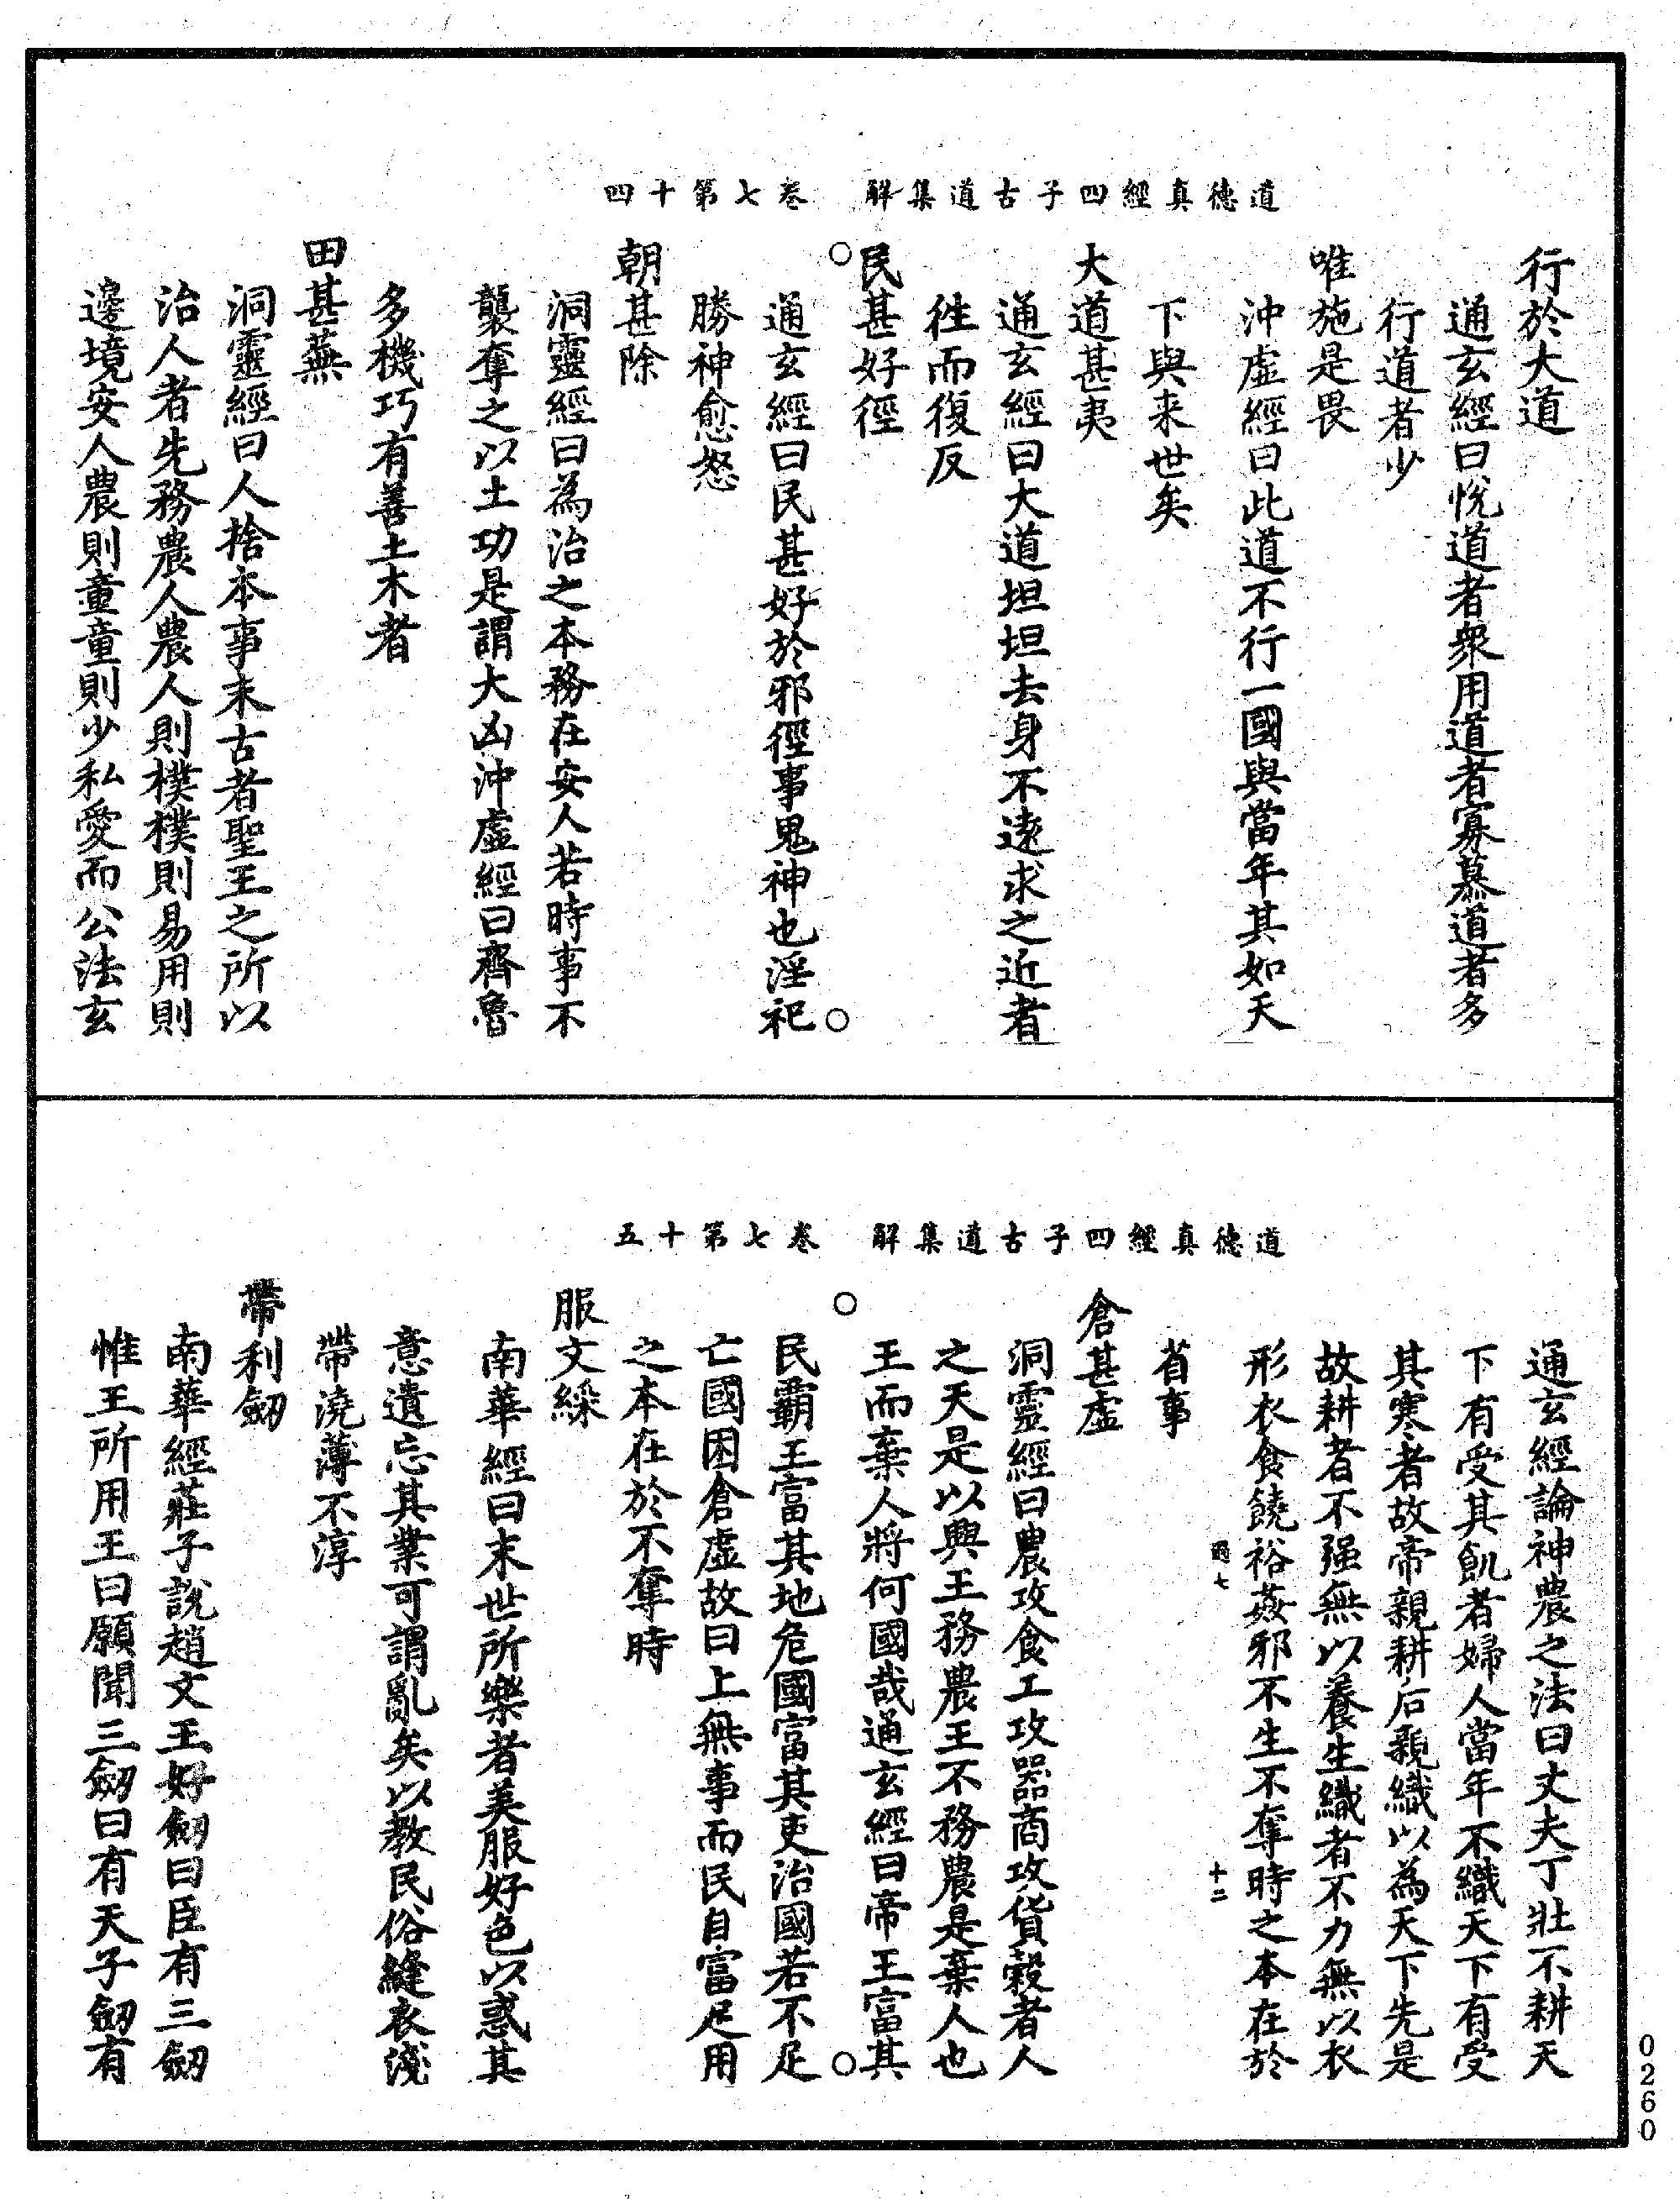 道德真經四子古道集解　卷七第十四
行於大道
通玄經曰悅道者衆用道者寡慕道者多
行道者少
唯施是畏
沖虛經曰此道不行一國與當年其如天
下與来世矣
大道甚夷
通玄經曰大道坦坦去身不遠求之近者
徃而復反
民甚好徑
通玄經曰民甚好於邪徑事鬼神也淫祀
勝神愈愈怒
朝甚除
洞靈經曰為治之本務在安人若時事不
襲奪之以土功是謂大凶沖虛經曰齊魯
多機巧有善土木者
田甚蕪
洞靈經曰人捨本事末古者聖王之所以
治人者先務農人農人則樸樸則易用則
邊境安人農則童童則少私愛而公法玄
道德真經四子古道集解　卷七第十五
通玄經論神農之法曰丈夫丁壯不耕天
下有受其飢者婦人當年不織天下有受
其寒者故帝親耕后親織以為天下先是
故耕者不强無以養生織者不力無以衣
形衣食饒裕姦邪不生不奪時之本在於
罔七　十二
省事
倉甚虛
洞靈經曰農攻食工攻器商攻貨穀者人
之天是以興王務農王不務農是棄人也
王而棄人將何國哉通玄經曰帝王富其
民霸王富其地危國富其吏治國若不足
亡國困倉虛故曰上無事而民自富足用
之本在於不奪時
服文綵
南華經曰末世所樂者美服好色以惑其
意遺忘其業可謂亂矣以教民俗縫衣淺
帶澆薄不淳
帶利劒
南華經莊子說趙文王好劒曰臣有三劒
惟王所用王曰願聞三劒曰有天子劒有
0260